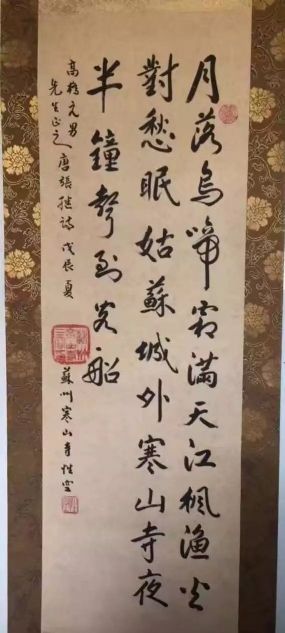 月落烏啼霜滿天江楓漁火
對愁眠姑蘇城外寒山寺夜
半鐘聲到客船
高 男
先生正之
唐張繼詩 戊辰夏
蘇州寒山寺性空